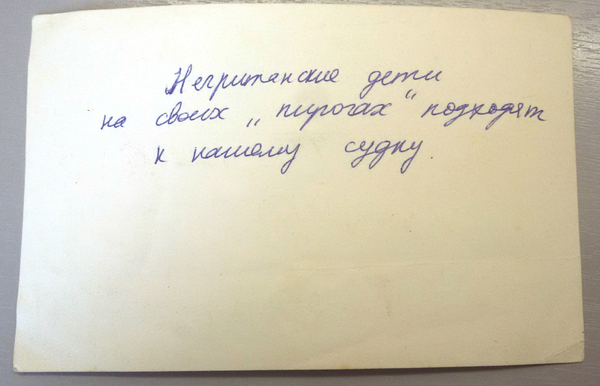 Негритянские дети
на своих „пирогах" подходят
к нашому судну.